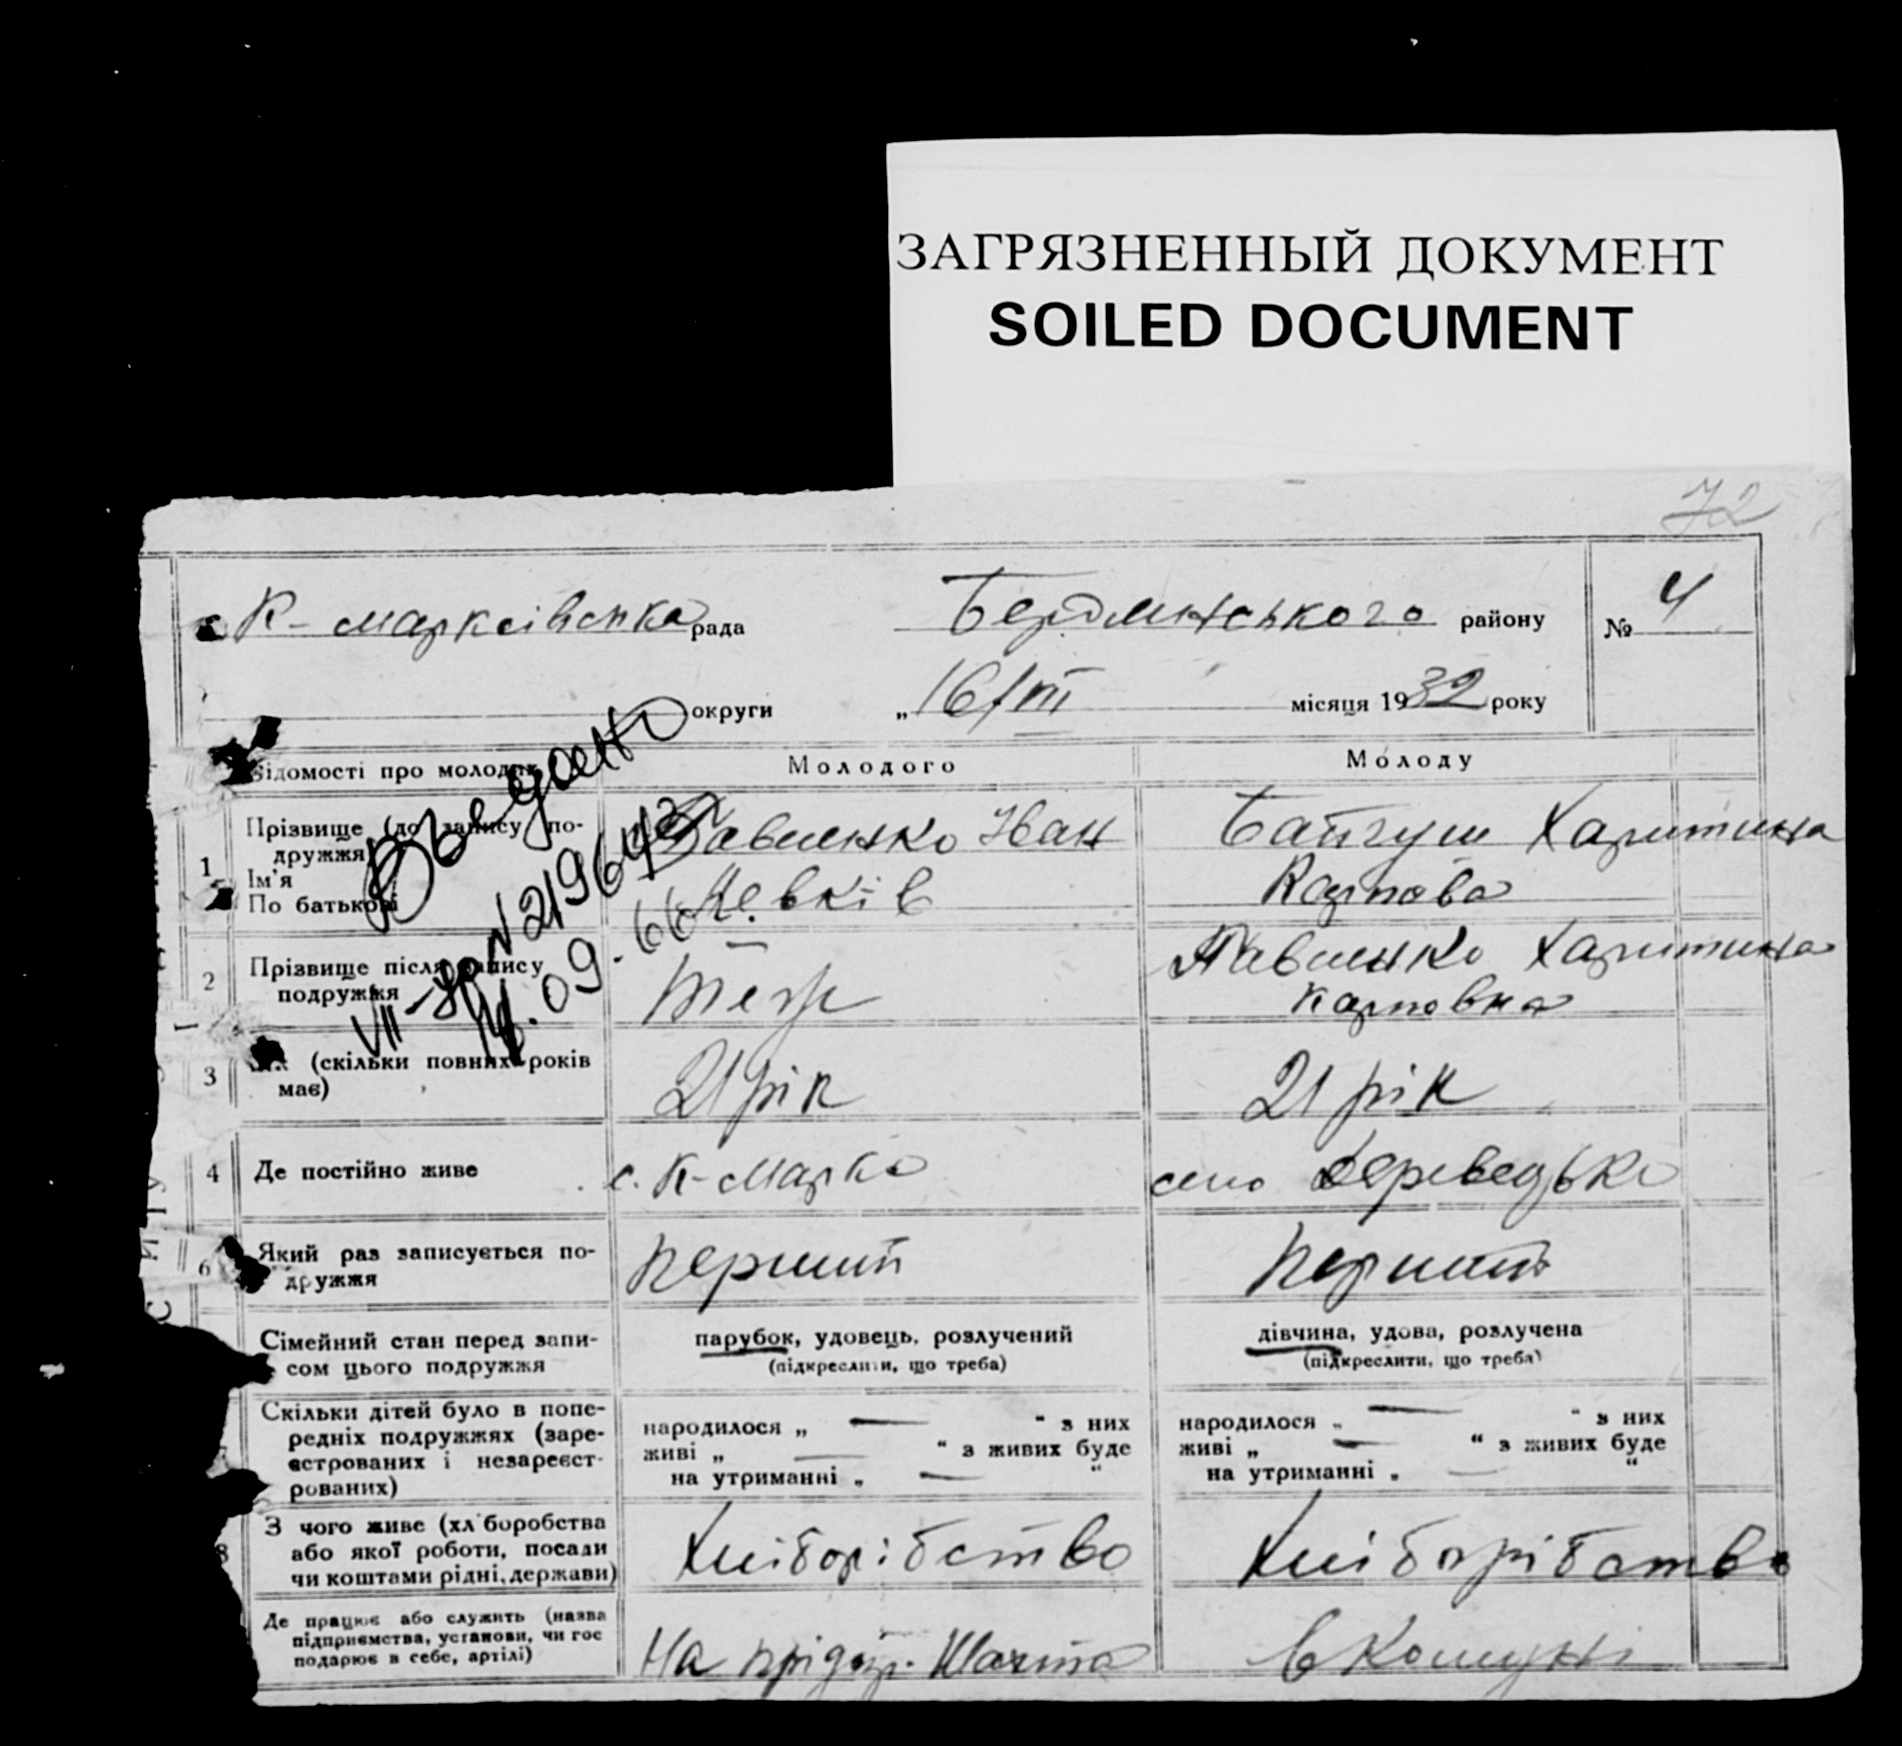 ЗАГРЯЗНЕННЫЙ ДОКУМЕНТ
SOILED DOCUMENT
72
К-марксівська рада
Бердянського району
№ 4
округи
„ 16/VII місяця 1932 року
Відомості про молодих
Молодого
Молоду
1
Прізвище (до запису по-
дружжя)
Ім'я
По батькові
Павленко Іван
Байгуш Харитина
Карпова
Въ
VII № 219643
09.66
2
Прізвище після запису
подружжя
Павленко Харитина
Карповна
3
(скільки повних років
має)
21 рік
21 рік
4
Де постійно живе
с. К-Маркс
село
6
Який раз записується по-
дружжя
перший
перший
Сімейний стан перед запи-
сом цього подружжя
парубок, удовець, розлучений
(підкреслити, що треба)
дівчина, удова, розлучена
(підкреслити, що треба)
Скільки дітей було в попе-
редніх подружжях (заре-
єстрованих і незареєст-
рованих)
народилося „ — " з них
живі „ — " з живих буде
на утриманні „ — "
народилося „ — " з них
живі „ — " з живих буде
на утриманні „ — "
8
З чого живе (хл боробства
або якої роботи, посади
чи коштами рідні, держави)
Хліборібство
Хліборібство
Де працює або служить (назва
підприємства, установи, чи гос
подарює в себе, артілі)
На Шахта
в Комуні